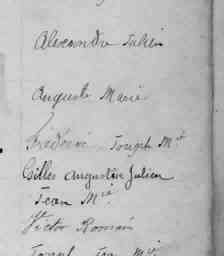 Alexandre Julien
Auguste Marie
Frédéric Joseph Mie
Gilles Augustin Julien
Jean Mie
Victor Romain
Joseph Jean Mie